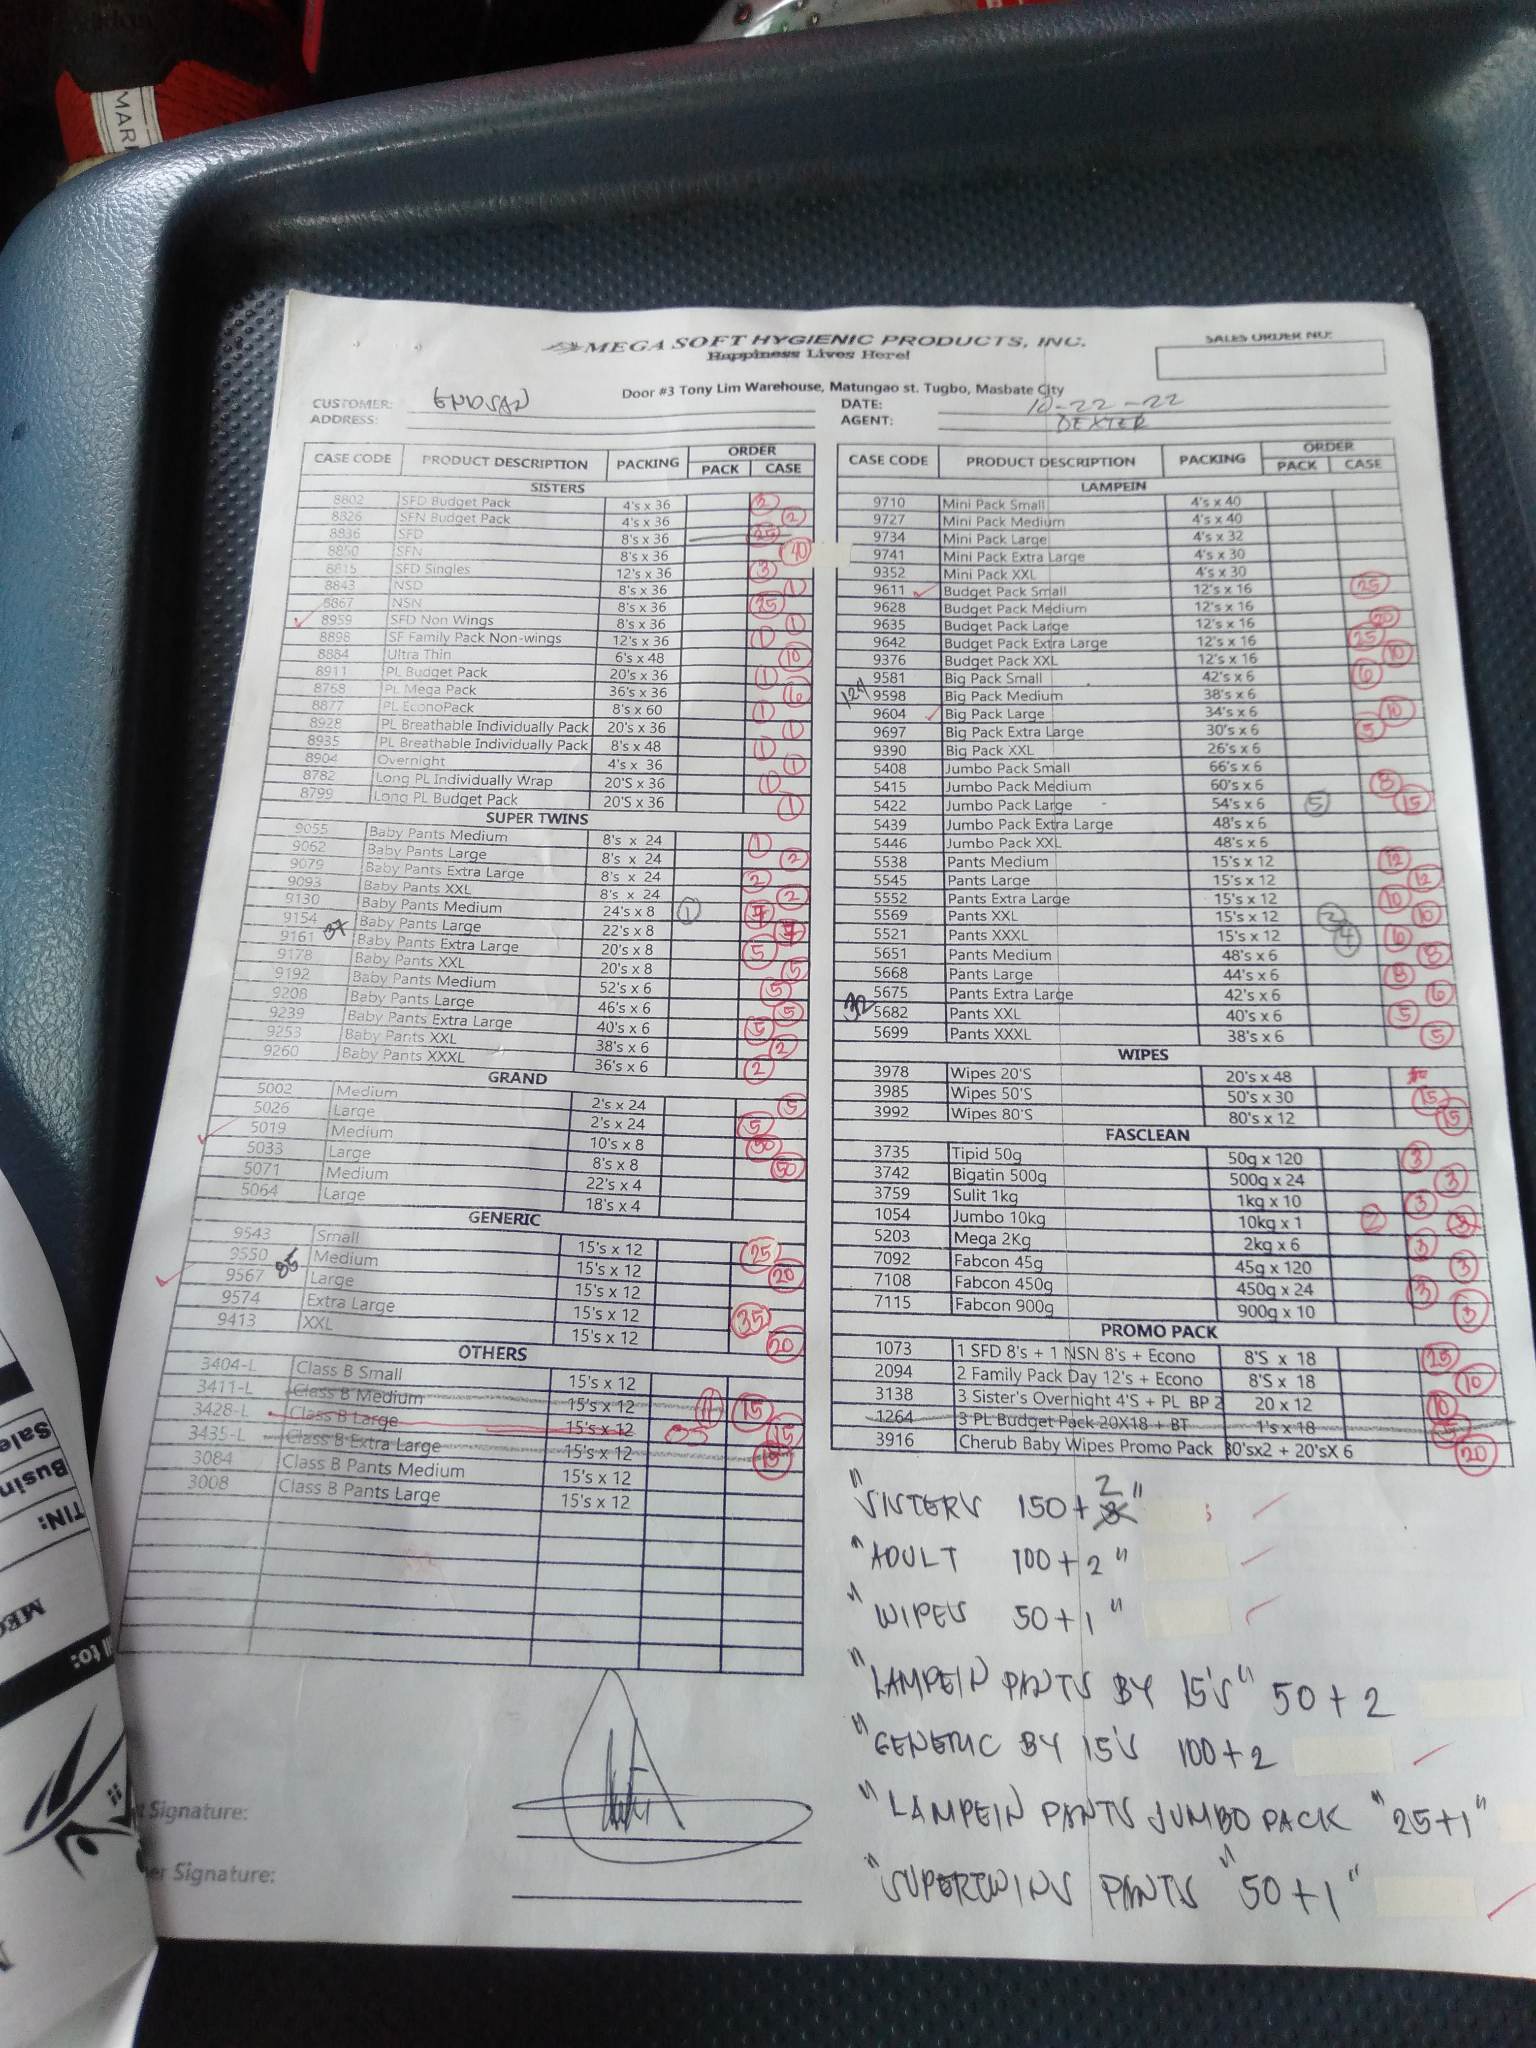 MARI
MEGA SOFT HYGIENIC PRODUCTS, INC.
Happiness Lives Here!
SALES ORDER NO:
Door #3 Tony Lim Warehouse, Matungao st. Tugbo, Masbate City
CUSTOMER: ENDSAN
ADDRESS:
DATE: 10-22-22
AGENT: DEXTER
CASE CODE PRODUCT DESCRIPTION PACKING ORDER PACK CASE
SISTERS
8802 SFD Budget Pack 4's x 36 2
8826 SFN Budget Pack 4's x 36 2
8836 SFD 8's x 36 25
8850 SFN 8's x 36 40
8815 SFD Singles 12's x 36 3
8843 NSD 8's x 36 1
8867 NSN 8's x 36 25
8959 SFD Non Wings 8's x 36 1
8898 SF Family Pack Non-wings 12's x 36 1
8884 Ultra Thin 6's x 48 10
8911 PL Budget Pack 20's x 36 1
8768 PL Mega Pack 36's x 36 6
8877 PL EconoPack 8's x 60 1
8928 PL Breathable Individually Pack 20's x 36 1
8935 PL Breathable Individually Pack 8's x 48 1
8904 Overnight 4's x 36 1
8782 Long PL Individually Wrap 20'S x 36 1
8799 Long PL Budget Pack 20'S x 36 1
SUPER TWINS
9055 Baby Pants Medium 8's x 24 1
9062 Baby Pants Large 8's x 24 2
9079 Baby Pants Extra Large 8's x 24 2
9093 Baby Pants XXL 8's x 24 2
9130 Baby Pants Medium 24's x 8 1 7
9154 Baby Pants Large 22's x 8 7
9161 37 Baby Pants Extra Large 20's x 8 5
9178 Baby Pants XXL 20's x 8 5
9192 Baby Pants Medium 52's x 6 5
9208 Baby Pants Large 46's x 6 5
9239 Baby Pants Extra Large 40's x 6 5
9253 Baby Pants XXL 38's x 6 2
9260 Baby Pants XXXL 36's x 6 2
GRAND
5002 Medium 2's x 24 5
5026 Large 2's x 24 5
5019 Medium 10's x 8 50
5033 Large 8's x 8 50
5071 Medium 22's x 4
5064 Large 18's x 4
GENERIC
9543 Small 15's x 12 25
9550 Medium 15's x 12 20
9567 Large 15's x 12
9574 Extra Large 15's x 12 35
9413 XXL 15's x 12 20
OTHERS
3404-L Class B Small 15's x 12
3411-L Class B Medium 15's x 12 11 15
3428-L Class B Large 15's x 12 15
3435-L Class B Extra Large 15's x 12
3084 Class B Pants Medium 15's x 12
3008 Class B Pants Large 15's x 12
Signature:
er Signature:
CASE CODE PRODUCT DESCRIPTION PACKING ORDER PACK CASE
LAMPEIN
9710 Mini Pack Small 4's x 40
9727 Mini Pack Medium 4's x 40
9734 Mini Pack Large 4's x 32
9741 Mini Pack Extra Large 4's x 30
9352 Mini Pack XXL 4's x 30
9611 Budget Pack Small 12's x 16 25
9628 Budget Pack Medium 12's x 16
9635 Budget Pack Large 12's x 16 20
9642 Budget Pack Extra Large 12's x 16 25
9376 Budget Pack XXL 12's x 16 10
9581 Big Pack Small 42's x 6 6
124 9598 Big Pack Medium 38's x 6
9604 Big Pack Large 34's x 6 10
9697 Big Pack Extra Large 30's x 6 5
9390 Big Pack XXL 26's x 6
5408 Jumbo Pack Small 66's x 6
5415 Jumbo Pack Medium 60's x 6 8
5422 Jumbo Pack Large 54's x 6 5 15
5439 Jumbo Pack Extra Large 48's x 6
5446 Jumbo Pack XXL 48's x 6
5538 Pants Medium 15's x 12 12
5545 Pants Large 15's x 12 12
5552 Pants Extra Large 15's x 12 10
5569 Pants XXL 15's x 12 2 10
5521 Pants XXXL 15's x 12 4 6
5651 Pants Medium 48's x 6 8
5668 Pants Large 44's x 6 8
5675 Pants Extra Large 42's x 6 6
32 5682 Pants XXL 40's x 6 5
5699 Pants XXXL 38's x 6 5
WIPES
3978 Wipes 20'S 20's x 48
3985 Wipes 50'S 50's x 30 15
3992 Wipes 80'S 80's x 12 15
FASCLEAN
3735 Tipid 50g 50g x 120 3
3742 Bigatin 500g 500g x 24 3
3759 Sulit 1kg 1kg x 10 3
1054 Jumbo 10kg 10kg x 1 2 3
5203 Mega 2Kg 2kg x 6 3
7092 Fabcon 45g 45g x 120 3
7108 Fabcon 450g 450g x 24 3
7115 Fabcon 900g 900g x 10 3
PROMO PACK
1073 1 SFD 8's + 1 NSN 8's + Econo 8'S x 18 25
2094 2 Family Pack Day 12's + Econo 8'S x 18 10
3138 3 Sister's Overnight 4'S + PL BP 2 20 x 12 10
1264 3 PL Budget Pack 20X18 + BT 1's x 18
3916 Cherub Baby Wipes Promo Pack 30'sx2 + 20'sX 6 20
"SISTERS 150+2"
"ADULT 100+2"
"WIPES 50+1"
"LAMPEIN PANTS BY 15'S" 50+2
"GENERIC BY 15'S 100+2
"LAMPEIN PANTS JUMBO PACK "25+1"
"SUPERTWINS PANTS "50+1"
Sale
Busin
TIN:
MEG
ll to: